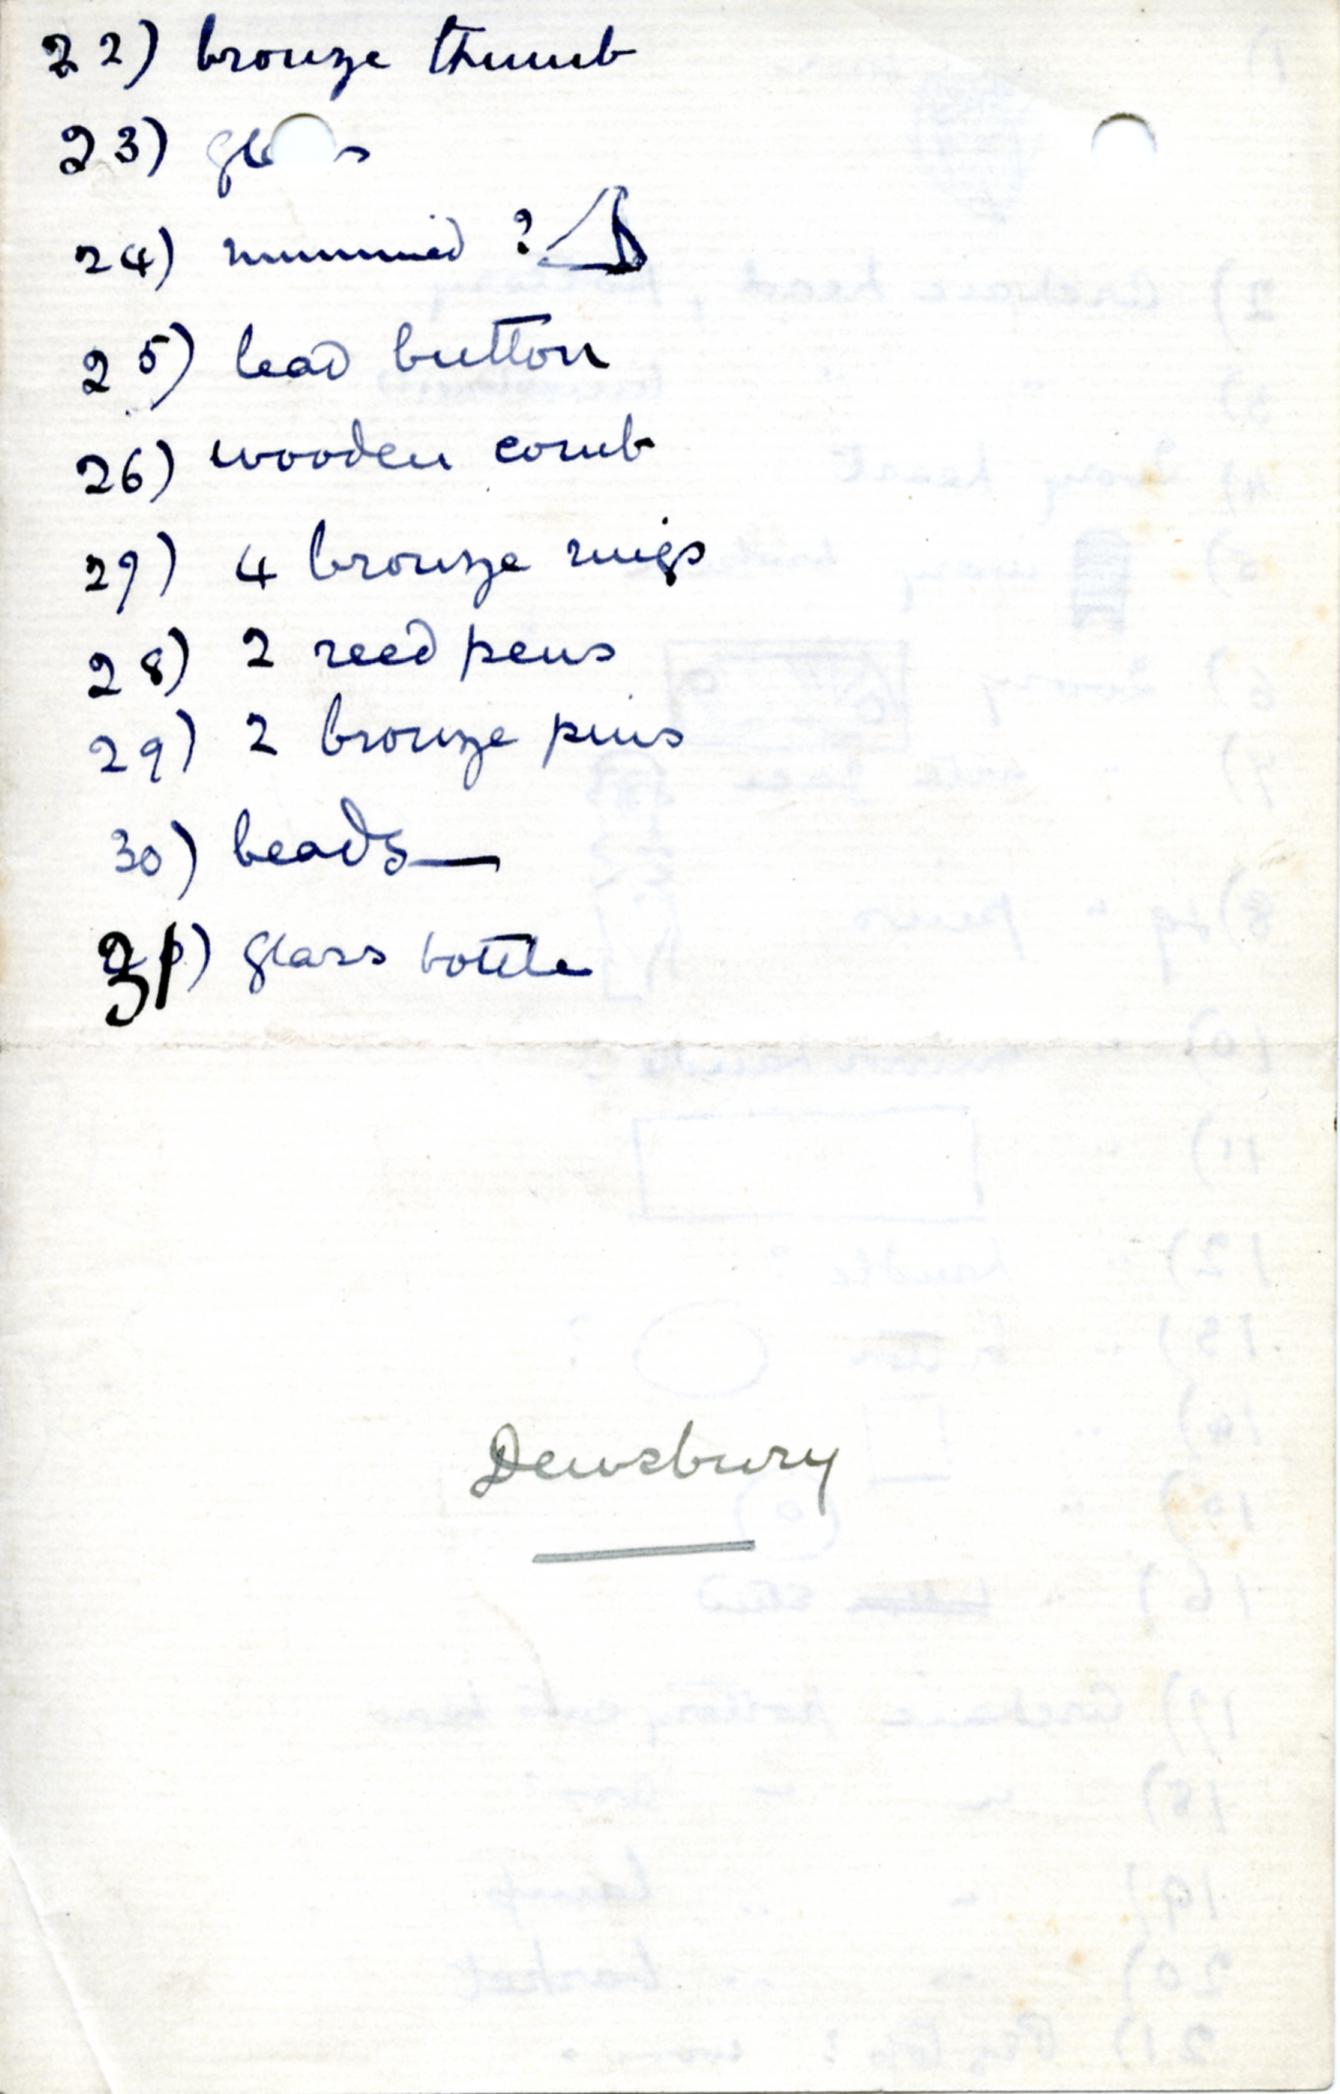 22) bronze thumb
23) gl s
24) mummied ?
25) lead button
26) wooden comb
27) 4 bronze rings
28) 2 reed pens
29) 2 bronze pins
30) beads—
31) glass bottle
Dewsbury